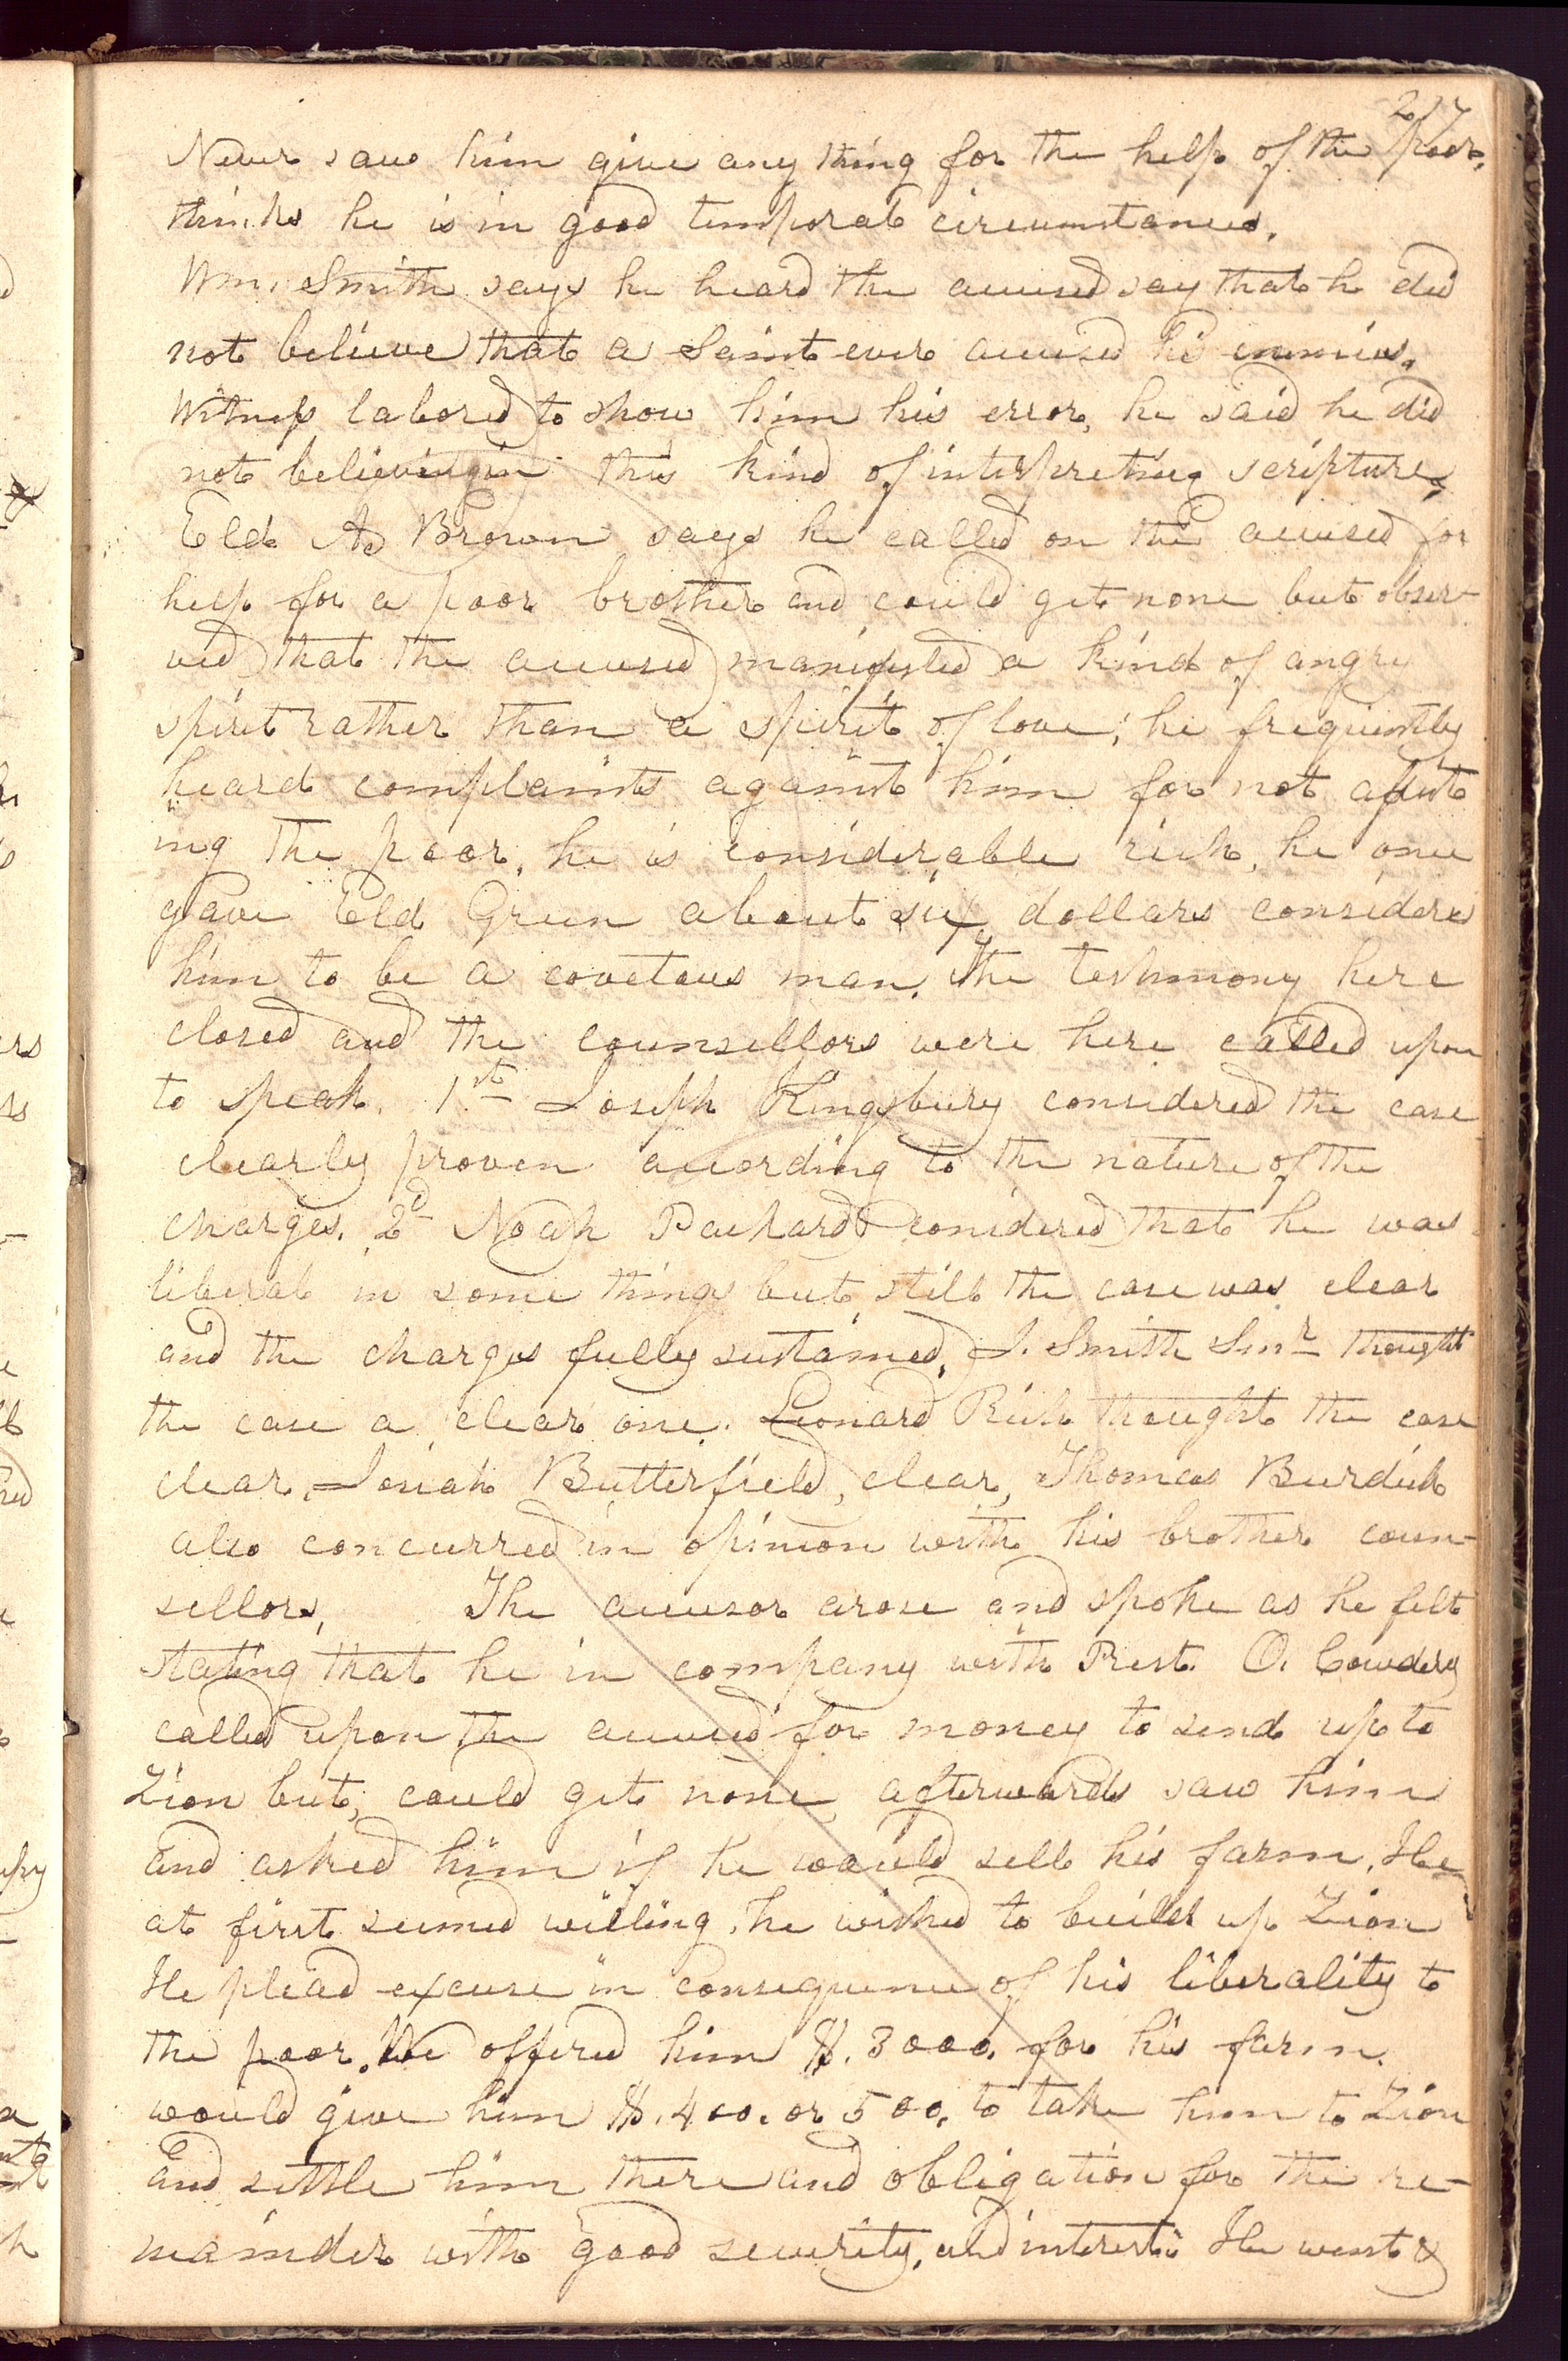 217
Never saw him give any thing for the help of the poor,
thinks he is in good temporal circumstances.
Wm. Smith says he heard the accused say that he did
not believe that a Saint ever accused his enemies.
Witness labored to show him his error, he said he did
not believe in this kind of interpreting scripture,
Eld. A Brown says he called on the accused for
help for a poor brother and could get none but obser-
ved that the accused manifested a kind of angry
spirit rather than a spirit of love; he frequently
heard complaints against him for not assist
ing the poor, he is considerable rich, he once
gave Eld Green about six dollars considers
him to be a covetous man. The testimony here
closed and the counsellors were here called upon
to speak. 1st Joseph Kingsbury considered the case
clearly proven according to the nature of the
charges. 2d Noah Packard considered that he was
liberal in some things but still the case was clear
and the charges fully sustained, J. Smith Senr thought
the case a clear one. Leonard Rich thought the case
clear, Josiah Butterfield, clear, Thomas Burdick
also concurred in opinion with his brother coun-
sellors, The accusor arose and spoke as he felt
stating that he in company with Prest. O. Cowdery
called upon the accused for money to send up to
Zion but, could get none, afterwards saw him
and asked him if he would sell his farm, He
at first seemed willing, he wished to build up Zion
He plead excuse in consequence of his liberality to
the poor. We offered him $. 3000. for his farm.
would give him $. 400. or 500. to take him to Zion
and settle him there and obligation for the re-
mainder with good security, and interest. He went &